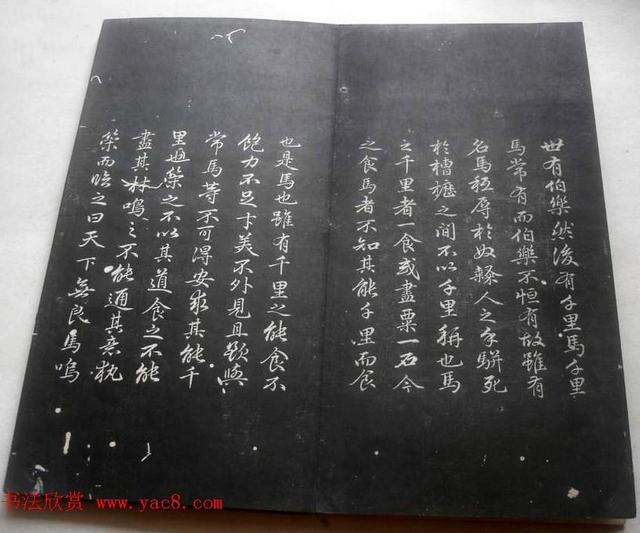 世有伯樂然後有千里馬千里
馬常有而伯樂不恒有故雖有
名馬秪辱於奴隸人之手駢死
於槽櫪之間不以千里稱也馬
之千里者一食或盡粟一石今
之食馬者不知其能千里而食
也是馬也雖有千里之能食不
飽力不足才美不外見且欲與
常馬等不可得安求其能千
里也策之不以其道食之不能
盡其材鳴之不能通其意執
策而臨之曰天下無良馬嗚
书法欣赏 www.yac8.com